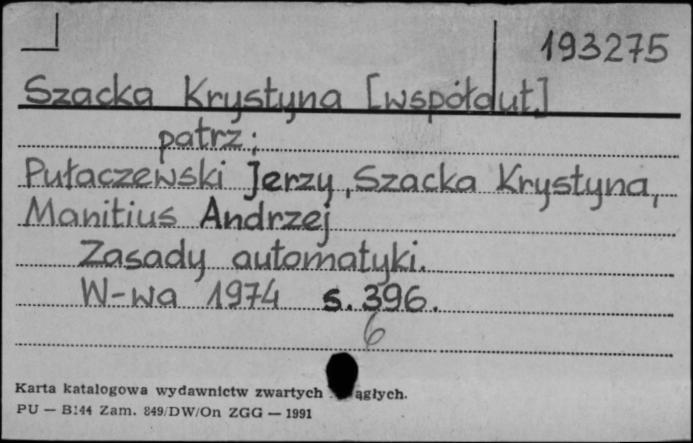 193275
Szacka Krystyna [współaut.]
patrz:
Pułaczewski Jerzy, Szacka Krystyna,
Manitius Andrzej
Zasady automatyki.
W-wa 1974 s. 396.
6
Karta katalogowa wydawnictw zwartych ągłych.
PU — B144 Zam. 849/DW/On ZGG — 1991